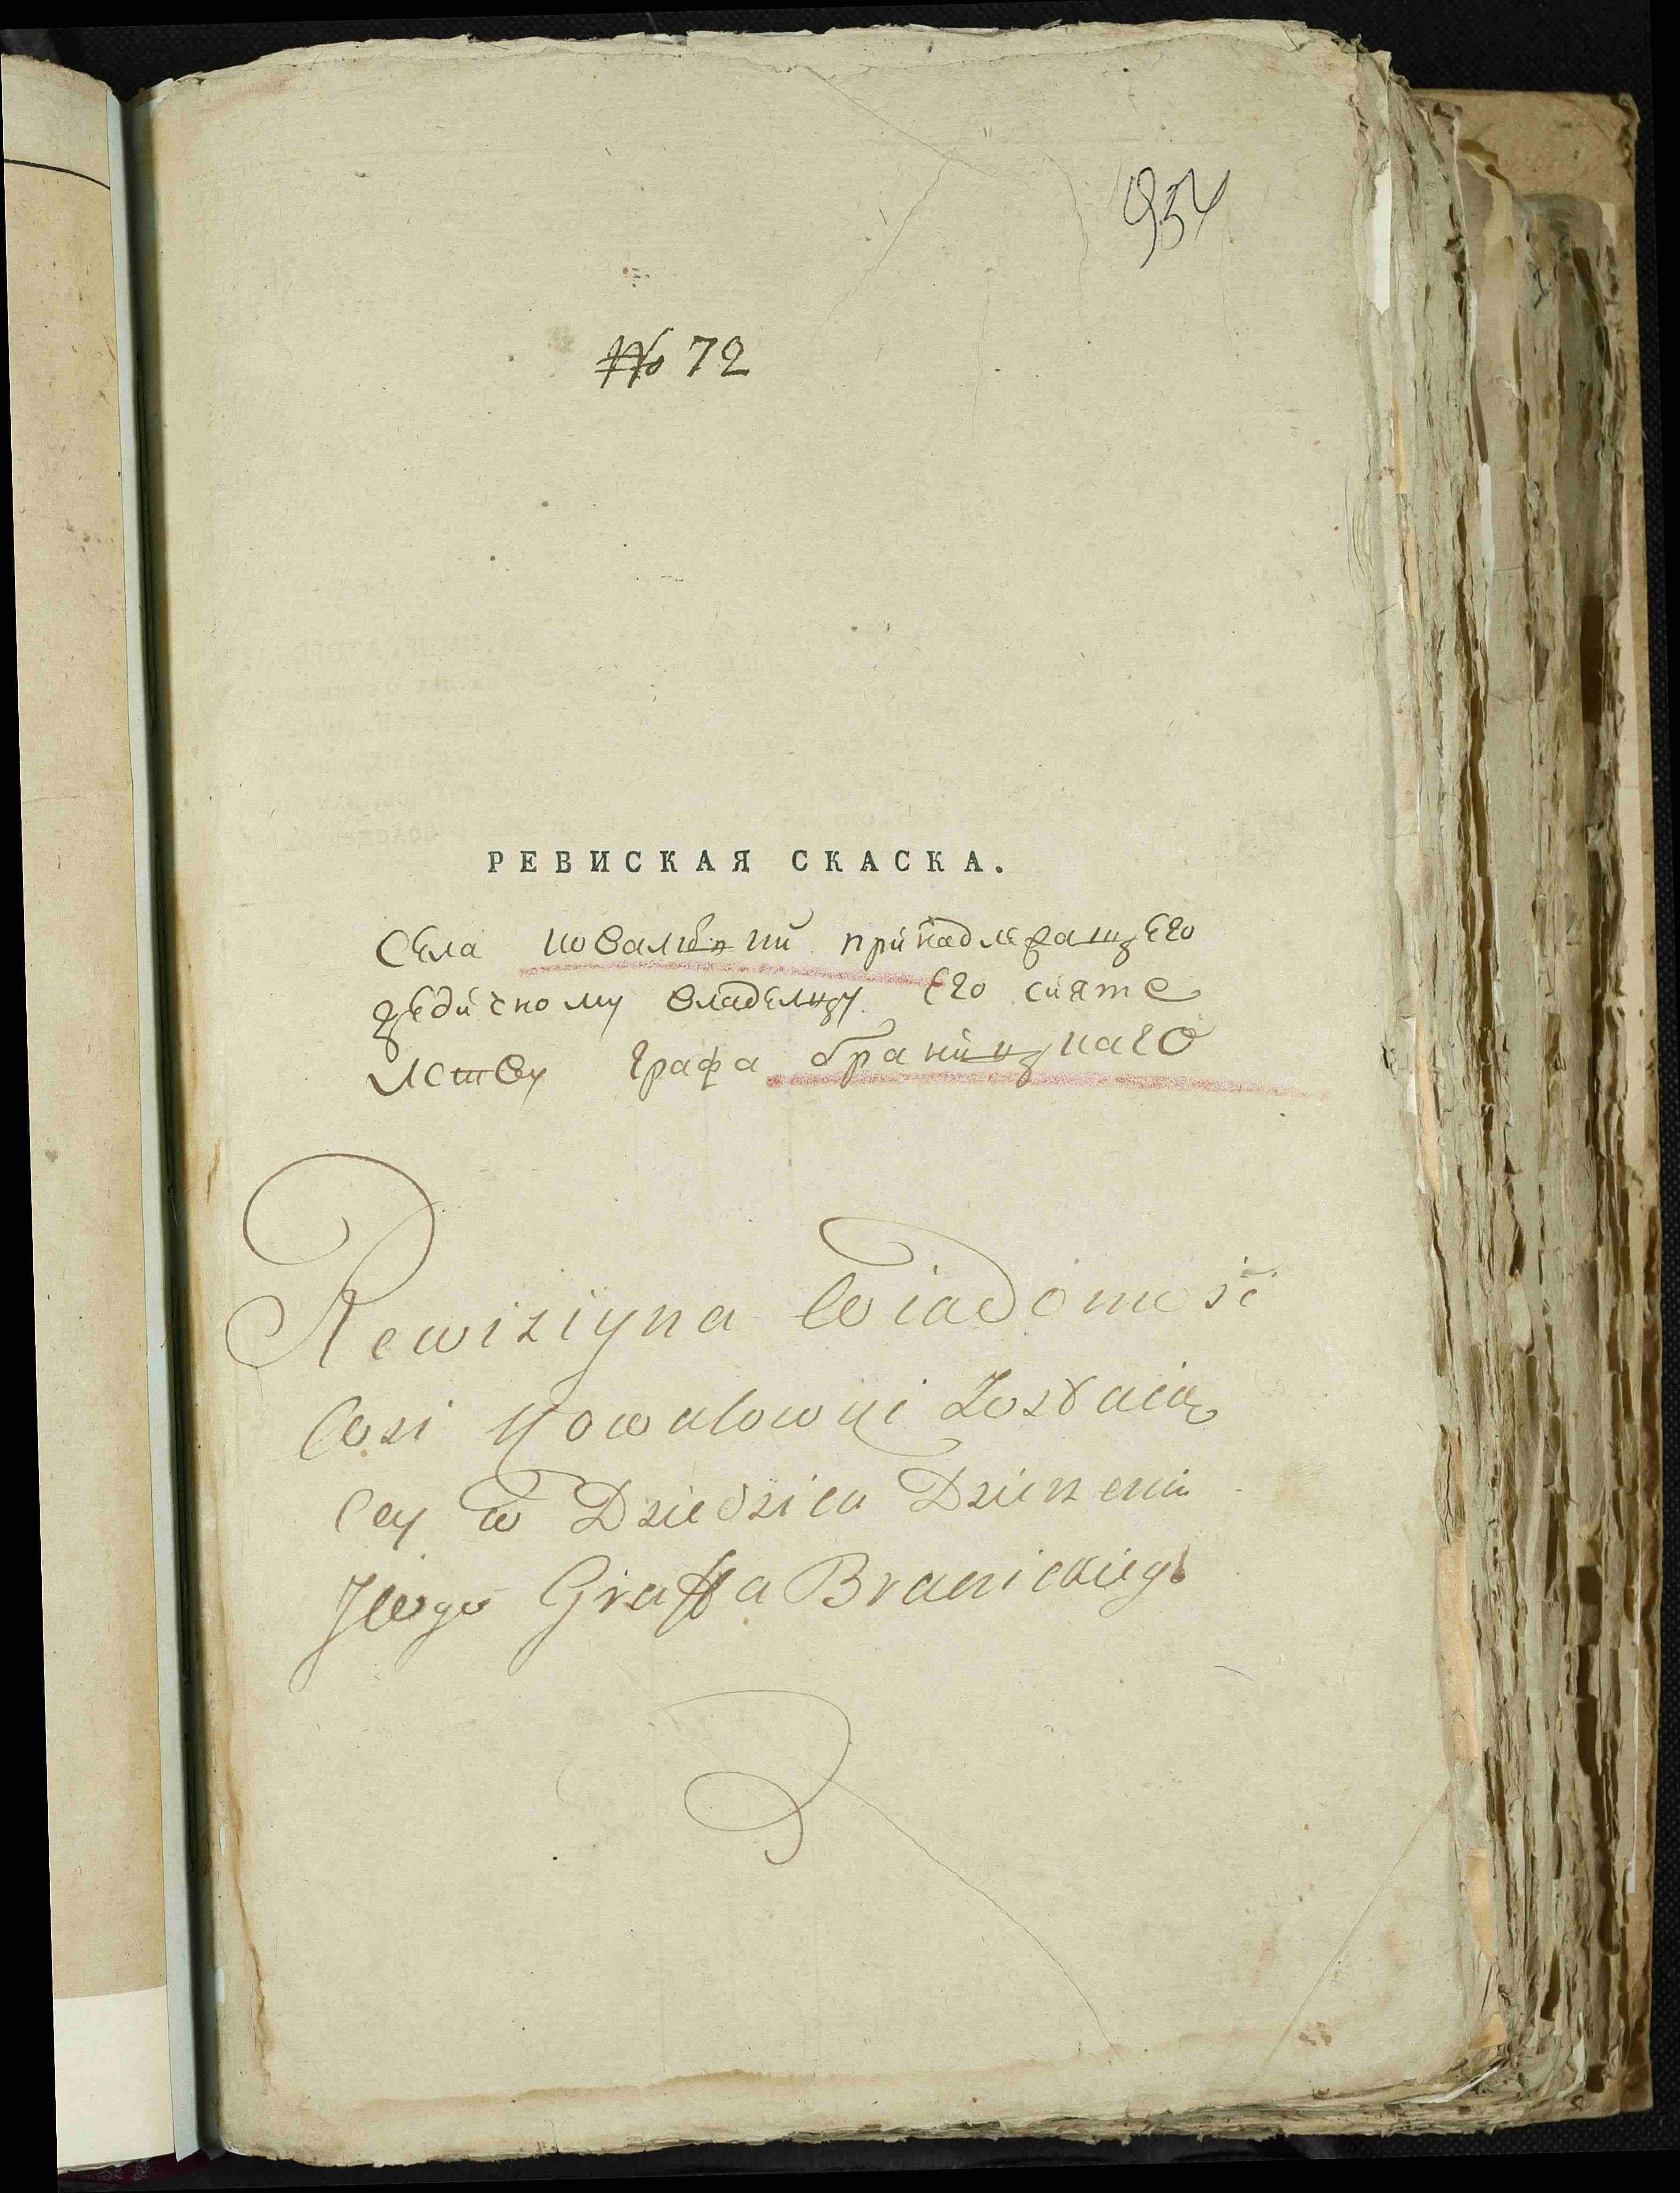 954
№ 72
РЕВИСКАЯ СКАСКА.
Села ковалювки принадлежащего
дедичному владелцу Его сияте
лству графа браницкаго
Rewizijna Wiadomość
Wsi Kowalowki Zostaią
cey w Dziedzica Dzierzeniu
JWgo Graffa Branickiego